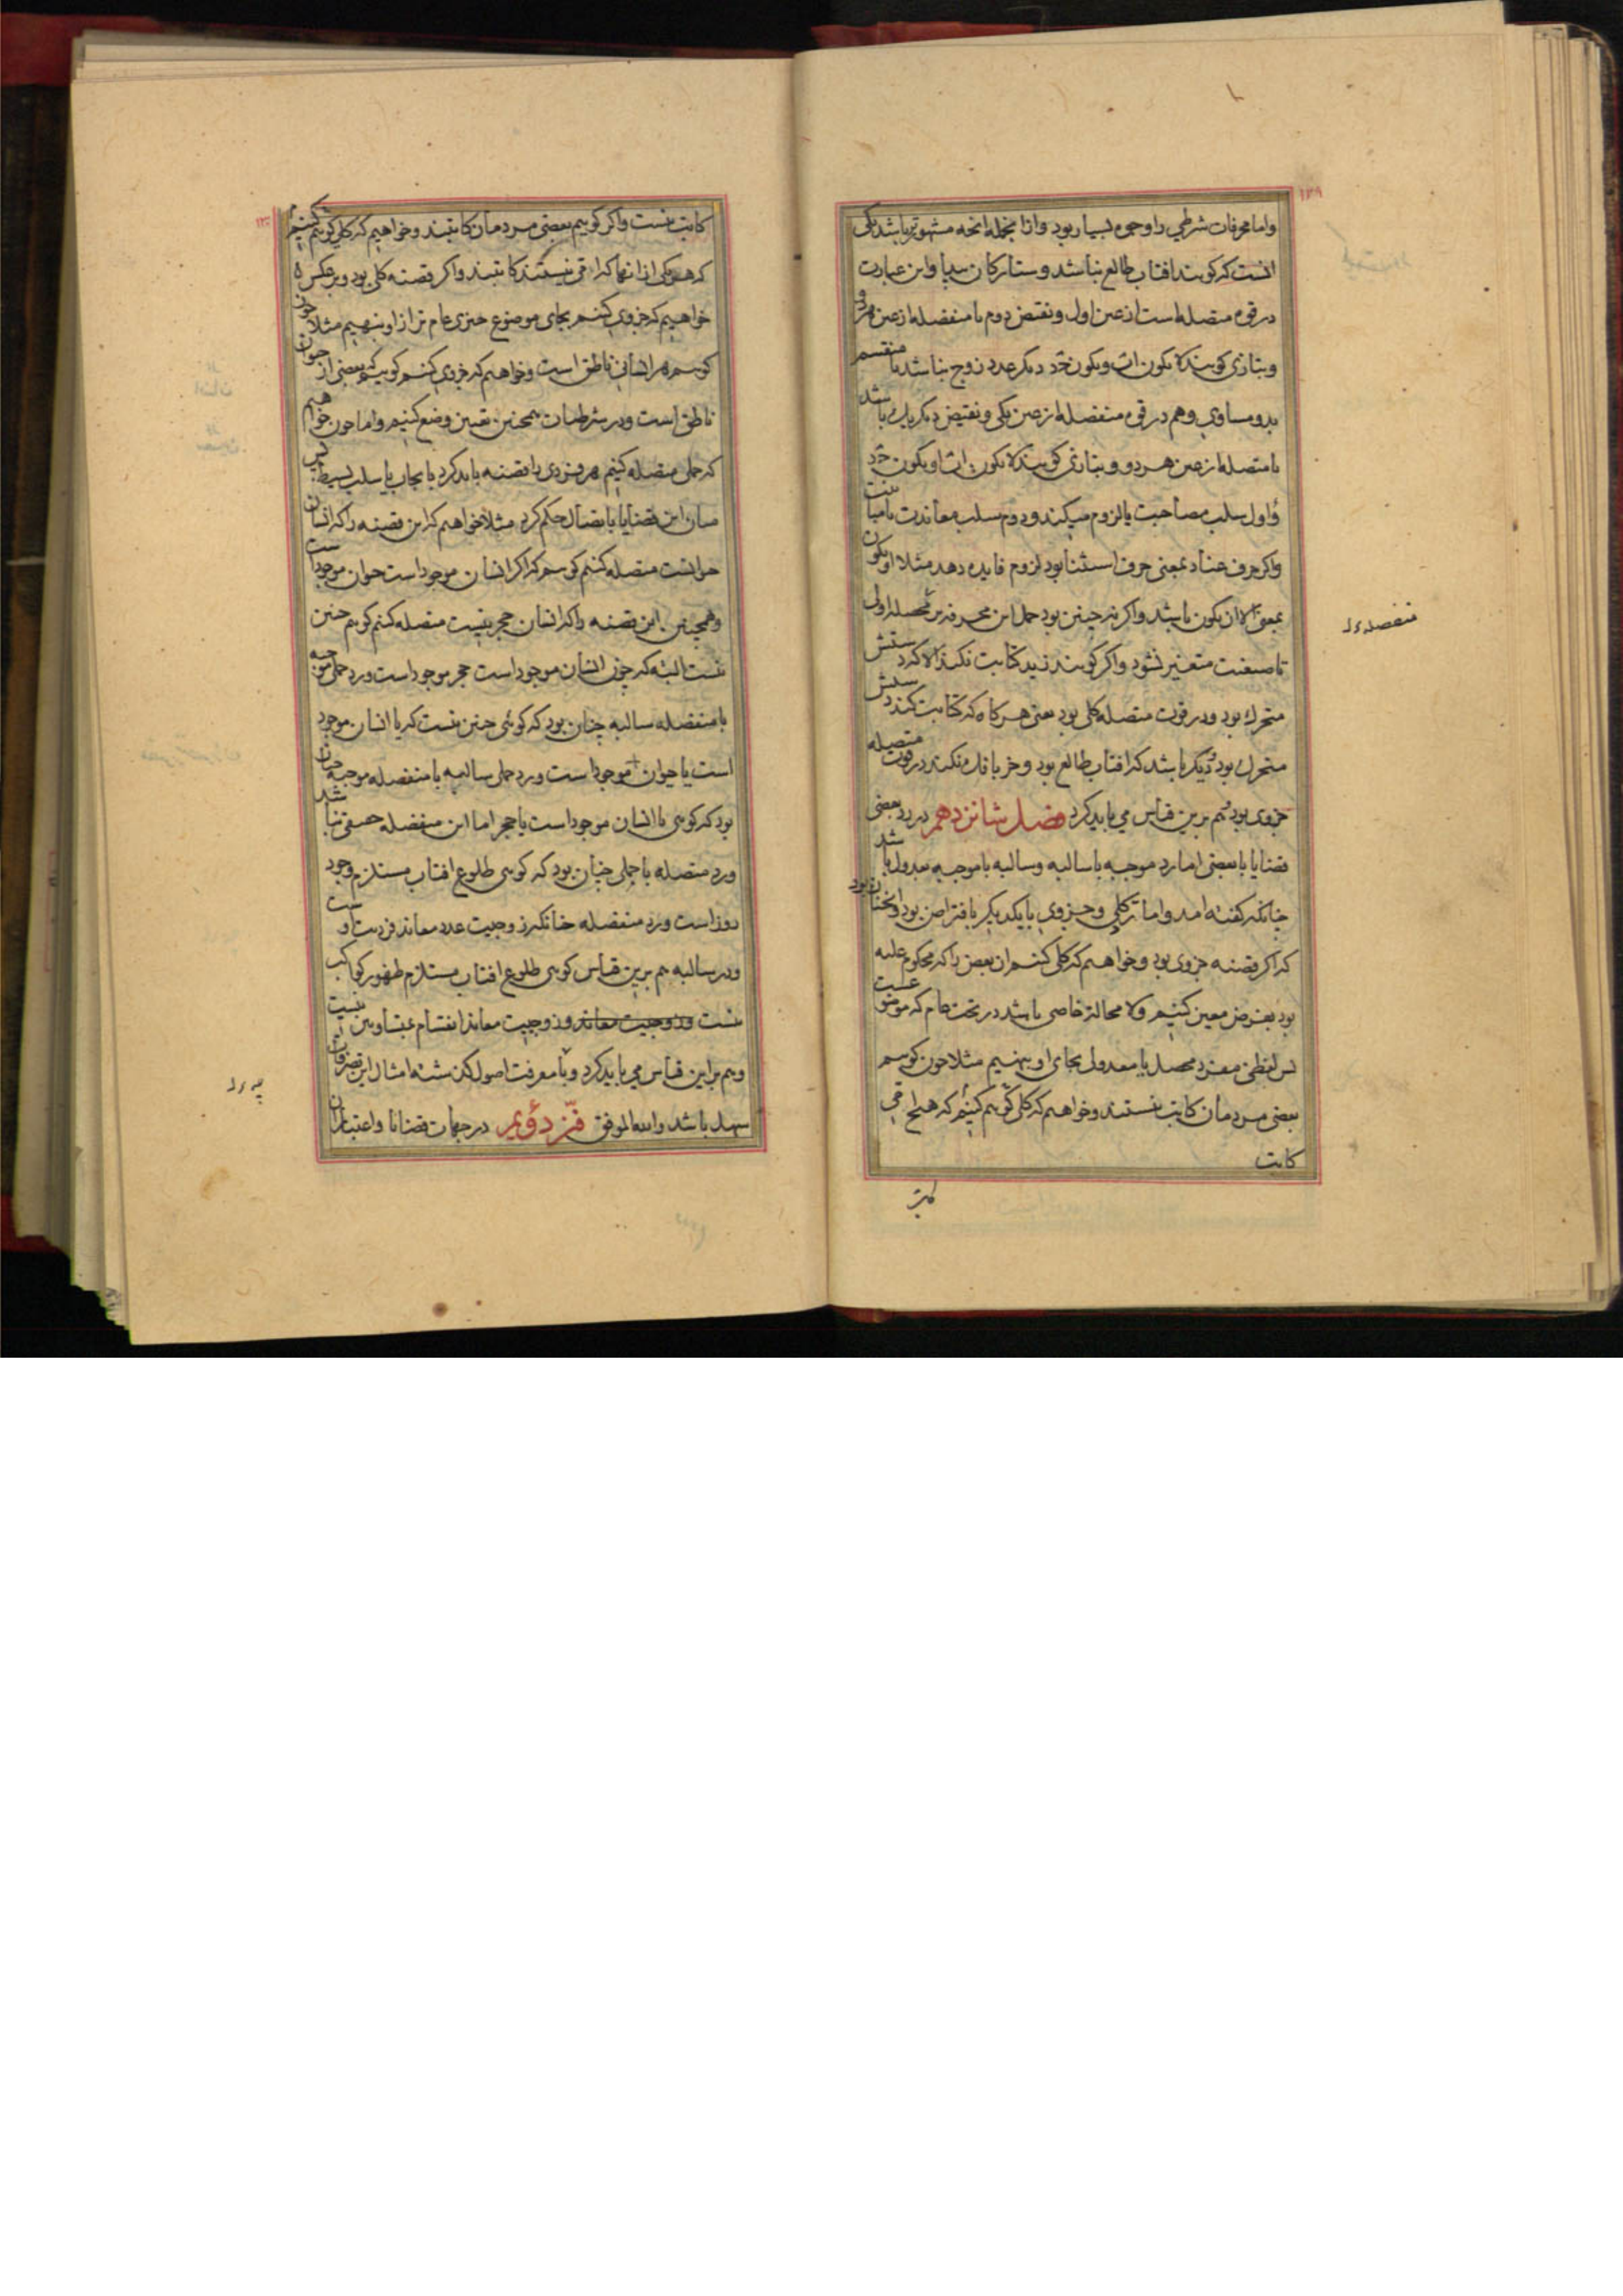 ۱۲۹
واما محرفات شرطی را وجوه بسیار بود و از انجمله انچه مشهورتر باشد یکی
انست که کویند افتاب طالع نباشد و ستارکان پیدا و این عبارت
در قوه متصله است از عین اول و نقیض دوم یا منفصله از عین هر دو
و بتازی کویند لا یکون اب و یکون جد دیکر عدد زوج نباشد یا منقسم
بدو مساوی و هم در قوه منفصله از عین یکی و نقیض دیکر یا باشد
یا متصله از عین هر دو و بتازی کویند لا یکون اب او یکون جد
و اول سلب مصاحبت یا لزوم میکند و دوم سلب معاندت یا مباینت
و اکر حرف عناد بمعنی حرف استثنا بود لزوم فایده دهد مثلا او یکون
بمعنی الا ان یکون باشد و اکر نه چنین بود حمل این محرفه بر محصله اولی
تا صیغت متغیر نشود و اکر کویند زید کتابت نکند الا که دستش
متحرک بود و در قوت متصله کلی بود یعنی هر کاه که کتابت کند دستش
متحرک بود و دیکر باشد که افتاب طالع بود و در قوت متصله
جزوی بود هم برین قیاس می باید کرد فصل شانزدهم در رد بعضی
قضایا با بعضی اما رد موجبه با سالبه و سالبه با موجبه بعدول باشد
چنانکه کفته امد و اما رد کلی و جزوی با یکدیکر بافتراض بود و انچنان بود
که اکر قضیه جزوی بود و خواهیم که کلی کنیم ان بعض را که محکوم علیه
بود بفرض معین کنیم و لا محاله خاصی باشد در تحت عام که موضوعست
پس لفظی مفرد محصل یا معدول بجای او بنهیم مثلا چون کوییم
بعضی مردمان کاتب نیستند و خواهیم که کلی کنیم کوییم که هیچ امی
کاتب
منفصله
۱۳۰
کاتب نیست و اکر کوییم بعضی مردمان کاتبند و خواهیم که کلی کنیم کوییم
که هر یکی از انها که امی نیستند کاتبند و اکر قضیه کلی بود و بر عکس
خواهیم که جزوی کنیم بجای موضوع چیزی عام تر از او بنهیم مثلا چون
کوییم هر انسانی ناطق است و خواهیم که جزوی کنیم کوییم بعضی از حیوان
ناطق است و در شرطیات همچنین تعیین وضع کنیم و اما چون خواهیم
که حملی متصله کنیم هر مفردی را قضیه باید کرد بایجاب یا سلب بسیط پس
میان این قضایا باتصال حکم کرد مثلا خواهیم که این قضیه را که انسان
حیوانست متصله کنیم کوییم که اکر انسان موجود است حیوان موجود است
و همچنین این قضیه را که انسان حجر نیست متصله کنیم کوییم چنین
نیست البته که چون انسان موجود است حجر موجود است و رد حملی موجبه
با منفصله سالبه چنان بود که کوئی چنین نیست که یا انسان موجود
است یا حیوان موجود است و رد حملی سالبه با منفصله موجبه چنان
بود که کوئی یا انسان موجود است یا حجر اما این منفصله حقیقی نباشد
و رد متصله با حملی چنان بود که کوئی طلوع افتاب مستلزم وجود
روز است و رد منفصله چنانکه زوجیت عدد معاند فردیت است
و در سالبه هم برین قیاس کوئی طلوع افتاب مستلزم ظهور کواکب
نیست و زوجیت معاند و زوجیت معاند انقسام بمتساویین نیست
و هم بر این قیاس می باید کرد و با معرفت اصول کذشته امثال این تصرفات
سهل باشد والله الموفق فن دویم در جهات قضایا و اعتبار ان